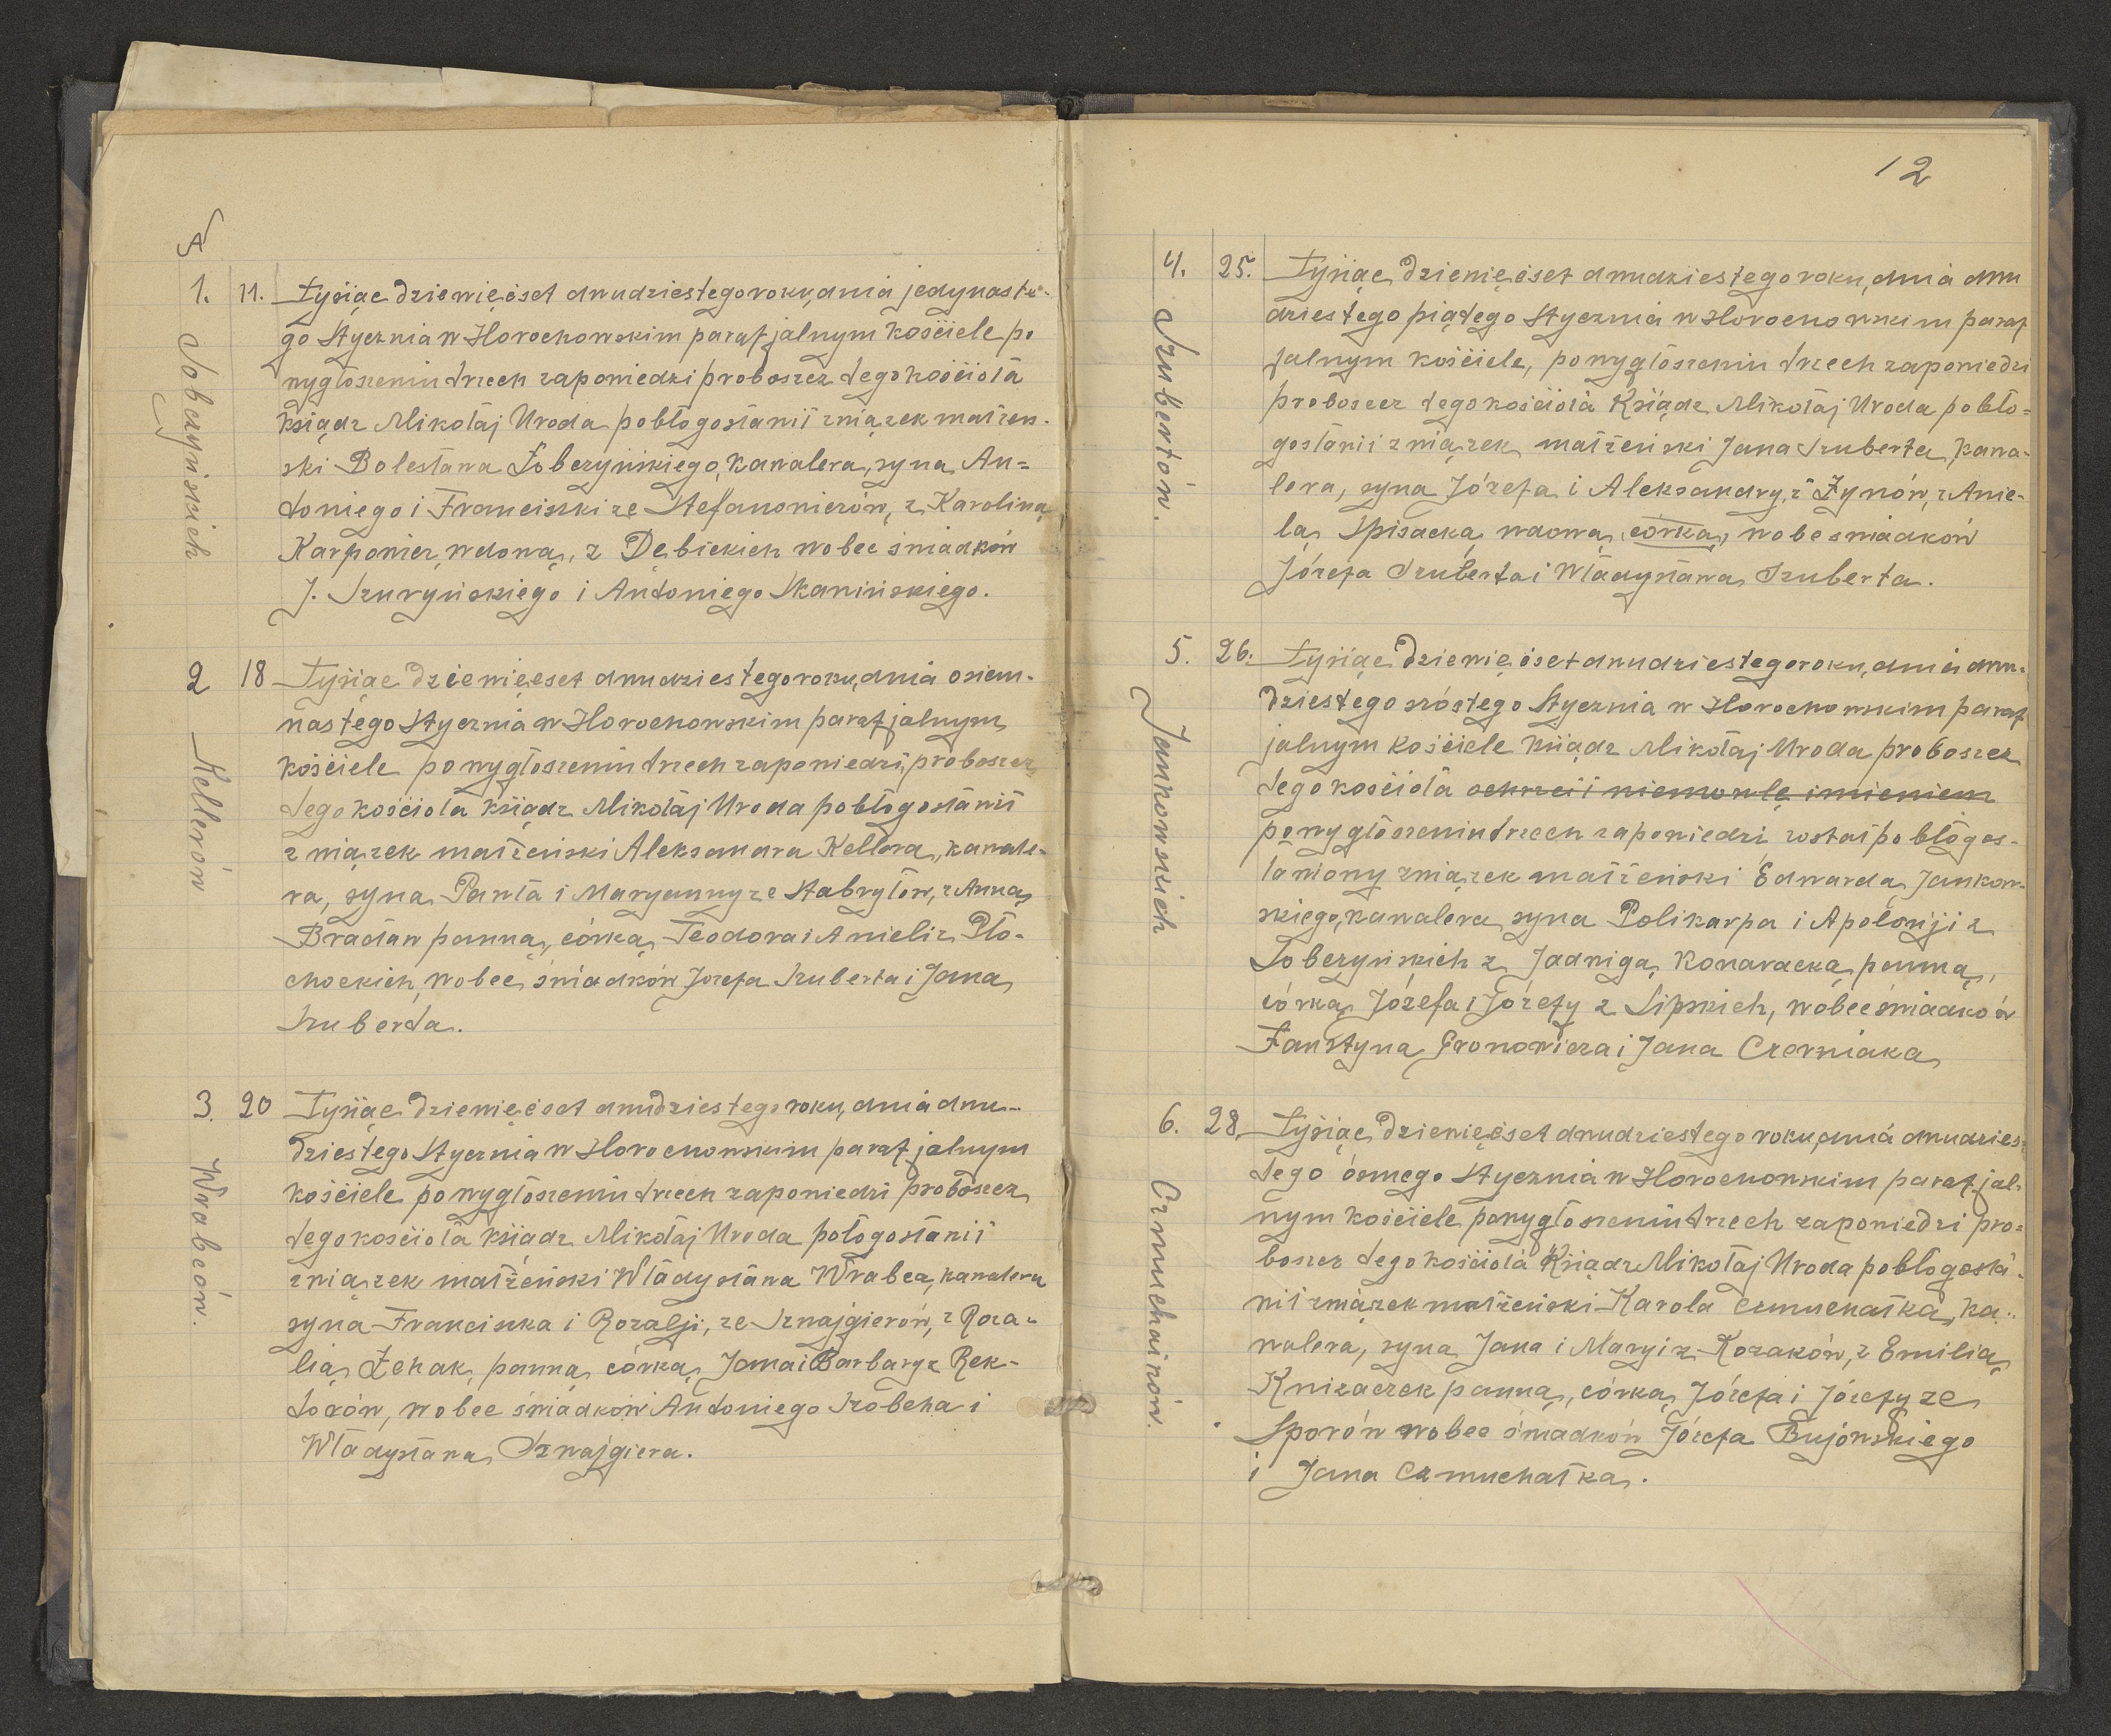 N
1. 11. Tysiąc dziewięćset dwudziestego roku, dnia jedynaste-
go Stycznia w Horochowskim parafjalnym kościele po
wygłoszeniu trzech zapowiedzi proboszcz tego kościoła
ksiądz Mikołaj Uroda pobłogosławił związek małżeń-
ski Bolesława Sobczyńskiego, kawalera, syna An=
toniego i Franciszki ze Stefanowiczów, z Karoliną
Karpowicz, wdową, z Dębickich wobec świadków
J. Szuryńskiego i Antoniego Skanińskiego.
Sobczyńskich
2 18 Tysiąc dziewięćset dwudziestego roku, dnia osiem-
nastego Stycznia w Horochowskim parafjalnym
kościele po wygłoszeniu trzech zapowiedzi, proboszcz
tego kościoła ksiądz Mikołaj Uroda pobłogosławił
związek małżeński Aleksandra Kellera, kawale-
ra, syna Pawła i Maryanny ze Stabryłów, z Anną
Bradań panną, córką Teodora i Anieli z Pło-
chockich, wobec świadków Józefa Szuberta i Jana
Szuberta.
Kellerów
3. 20 Tysiąc dziewięćset dwudziestego roku, dnia dwu-
dziestego Stycznia w Horochowskim parafjalnym
kościele po wygłoszeniu trzech zapowiedzi proboszcz
tego kościoła ksiądz Mikołaj Uroda połogosławił
związek małżeński Władysława Wrabca, kawalera
syna Franciszka i Rozalji, ze Sznajgierów, z Roza-
lią Żehak, panną córką Jana i Barbary z Rek-
torów, wobec świadków Antoniego Szobeha i
Władysława Sznajgiera.
Wrabców.
12
4. 25. Tysiąc dziewięćset dwudziestego roku, dnia dwu
dziestego piątego Stycznia w Horochowskim paraf
jalnym kościele, po wygłoszeniu trzech zapowiedzi
proboszcz tego kościoła Ksiądz Mikołaj Uroda pobło=
gosławił związek małżeński Jana Szuberta, kawa-
lera, syna Józefa i Aleksandry, z Żynów, z Anie-
lą Spisacką, wdową, córką, wobe świadków
Józefa Szuberta i Władysława Szuberta.
Szubertów.
5. 26. Tysiąc dziewięćset dwudziestego roku, dnia dwu-
dziestego szóstego Stycznia w Horochowskim paraf
jalnym kościele ksiądz Mikołaj Uroda proboszcz
tego kościoła ochrzcił niemowlę imieniem
po wygłoszeniu trzech zapowiedzi został pobłogos-
ławiony związek małżeński Edwarda Jankow-
skiego, kawalera syna Polikarpa i Apolonji z
Sobczyńskich z Jadwigą Konaracką panną,
córką Józefa i Józefy z Lipskich, wobec świadków
Faustyna Gronowicza i Jana Czerniaka
Jankowskich
6. 28. Tysiąc dziewięćset dwudziestego roku, dnia dwudzies-
tego ósmego Stycznia w Horochowskim parafjal-
nym kościele po wygłoszeniu trzech zapowiedzi pro=
boszcz tego kościoła Ksiądz Mikołaj Uroda pobłogosła-
wił związek małżeński Karola Czmuchałka, ka-
walera, syna Jana i Maryi z Kozaków, z Emilią
Knizaczek panną, córką Józefa i Józefy ze
Sporów wobec świadków Józefa Bujówskiego
i Jana Czmuchałka.
Czmuchałków.